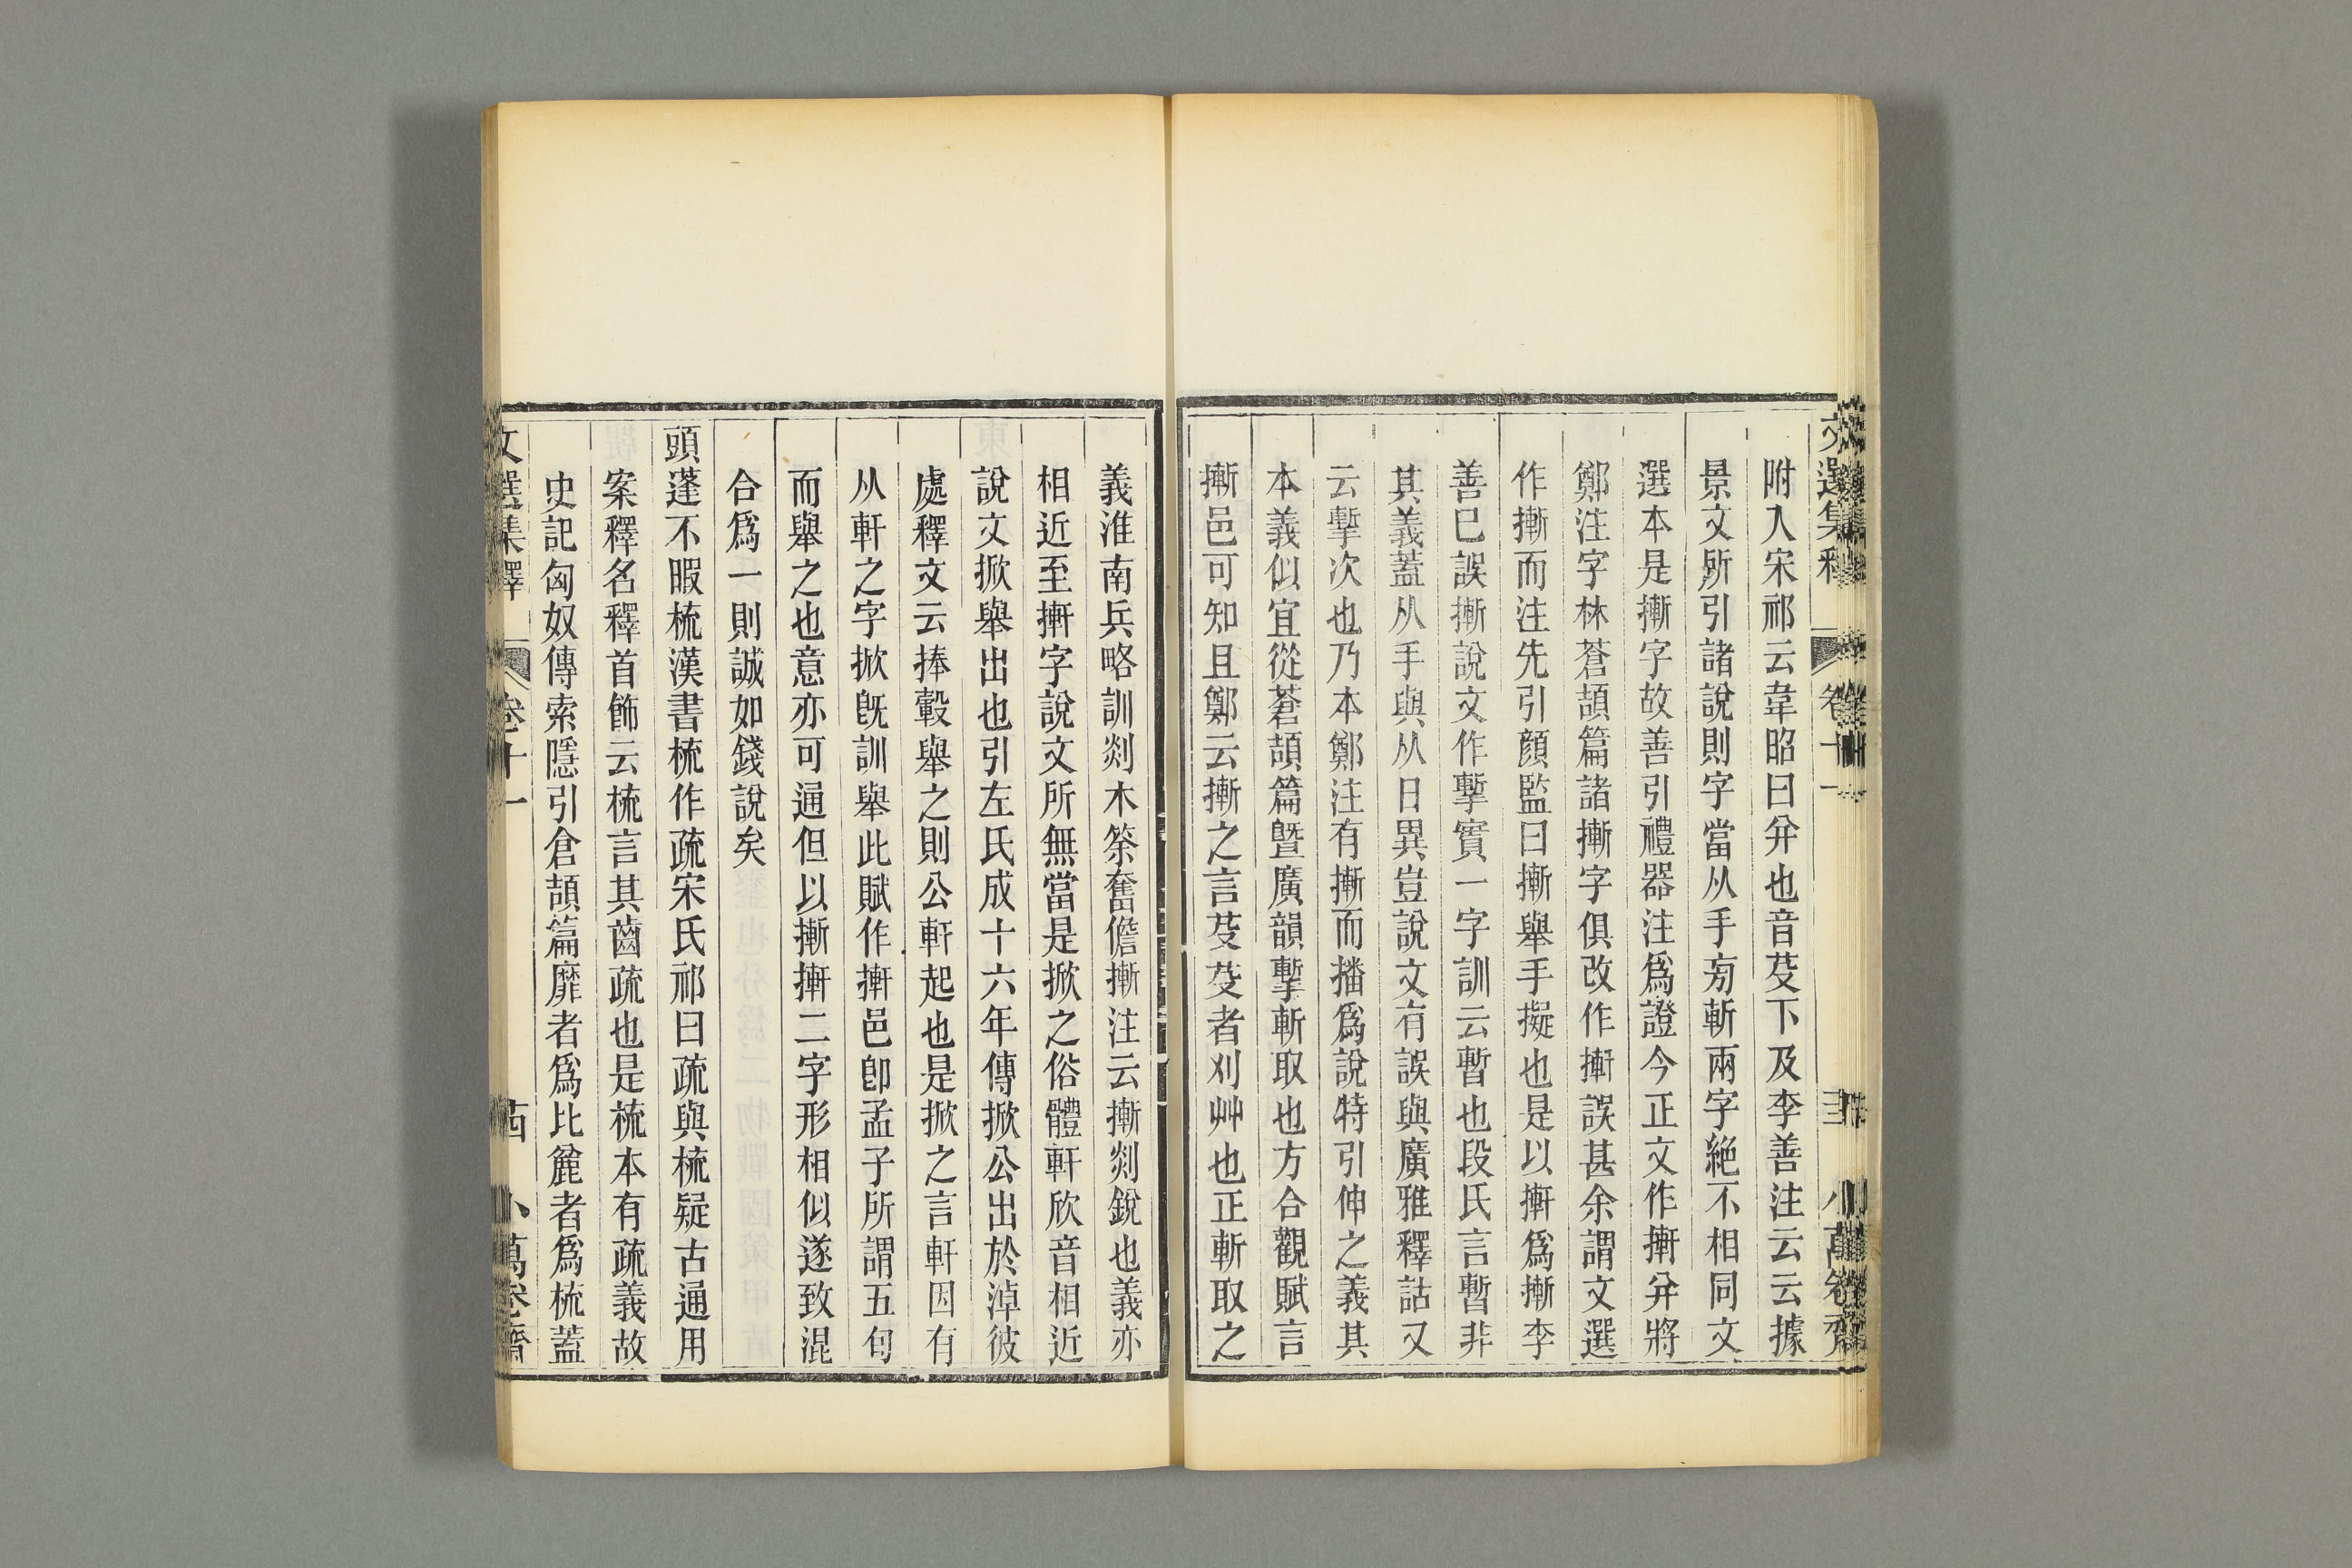 文選集釋 卷十一 小萬卷齋
附入宋祁云韋昭曰并也音芟下及李善注云云據
景文所引諸說則字當从手旁斬兩字絕不相同文
選本是摲字故善引禮器注爲證今正文作㨔并將
鄭注字林蒼頡篇諸摲字俱改作㨔誤甚余謂文選
作摲而注先引顔監曰摲舉手擬也是以㨔爲摲李
善巳誤摲說文作摮實一字訓云暫也段氏言暫非
其義蓋从手與从日異豈說文有誤與廣雅釋詁又
云摮次也乃本鄭注有摲而播爲說特引伸之義其
本義似宜從蒼頡篇曁廣韻摮斬取也方合觀賦言
摲邑可知且鄭云摲之言芟芟者刈艸也正斬取之
義淮南兵略訓剡木筡奮儋摲注云摲剡銳也義亦
相近至㨔字說文所無當是掀之俗體軒欣音相近
說文掀舉出也引左氏成十六年傳掀公出於淖彼
處釋文云捧轂舉之則公軒起也是掀之言軒因有
从軒之字掀旣訓舉此賦作㨔邑卽孟子所謂五旬
而舉之也意亦可通但以摲㨔二字形相似遂致混
合爲一則誠如錢說矣
頭蓬不暇梳漢書梳作疏宋氏祁曰疏與梳疑古通用
案釋名釋首飾云梳言其齒疏也是梳本有疏義故
史記匈奴傳索隱引倉頡篇靡者爲比麄者爲梳蓋
文選集釋 卷十一 十四 小萬卷齋